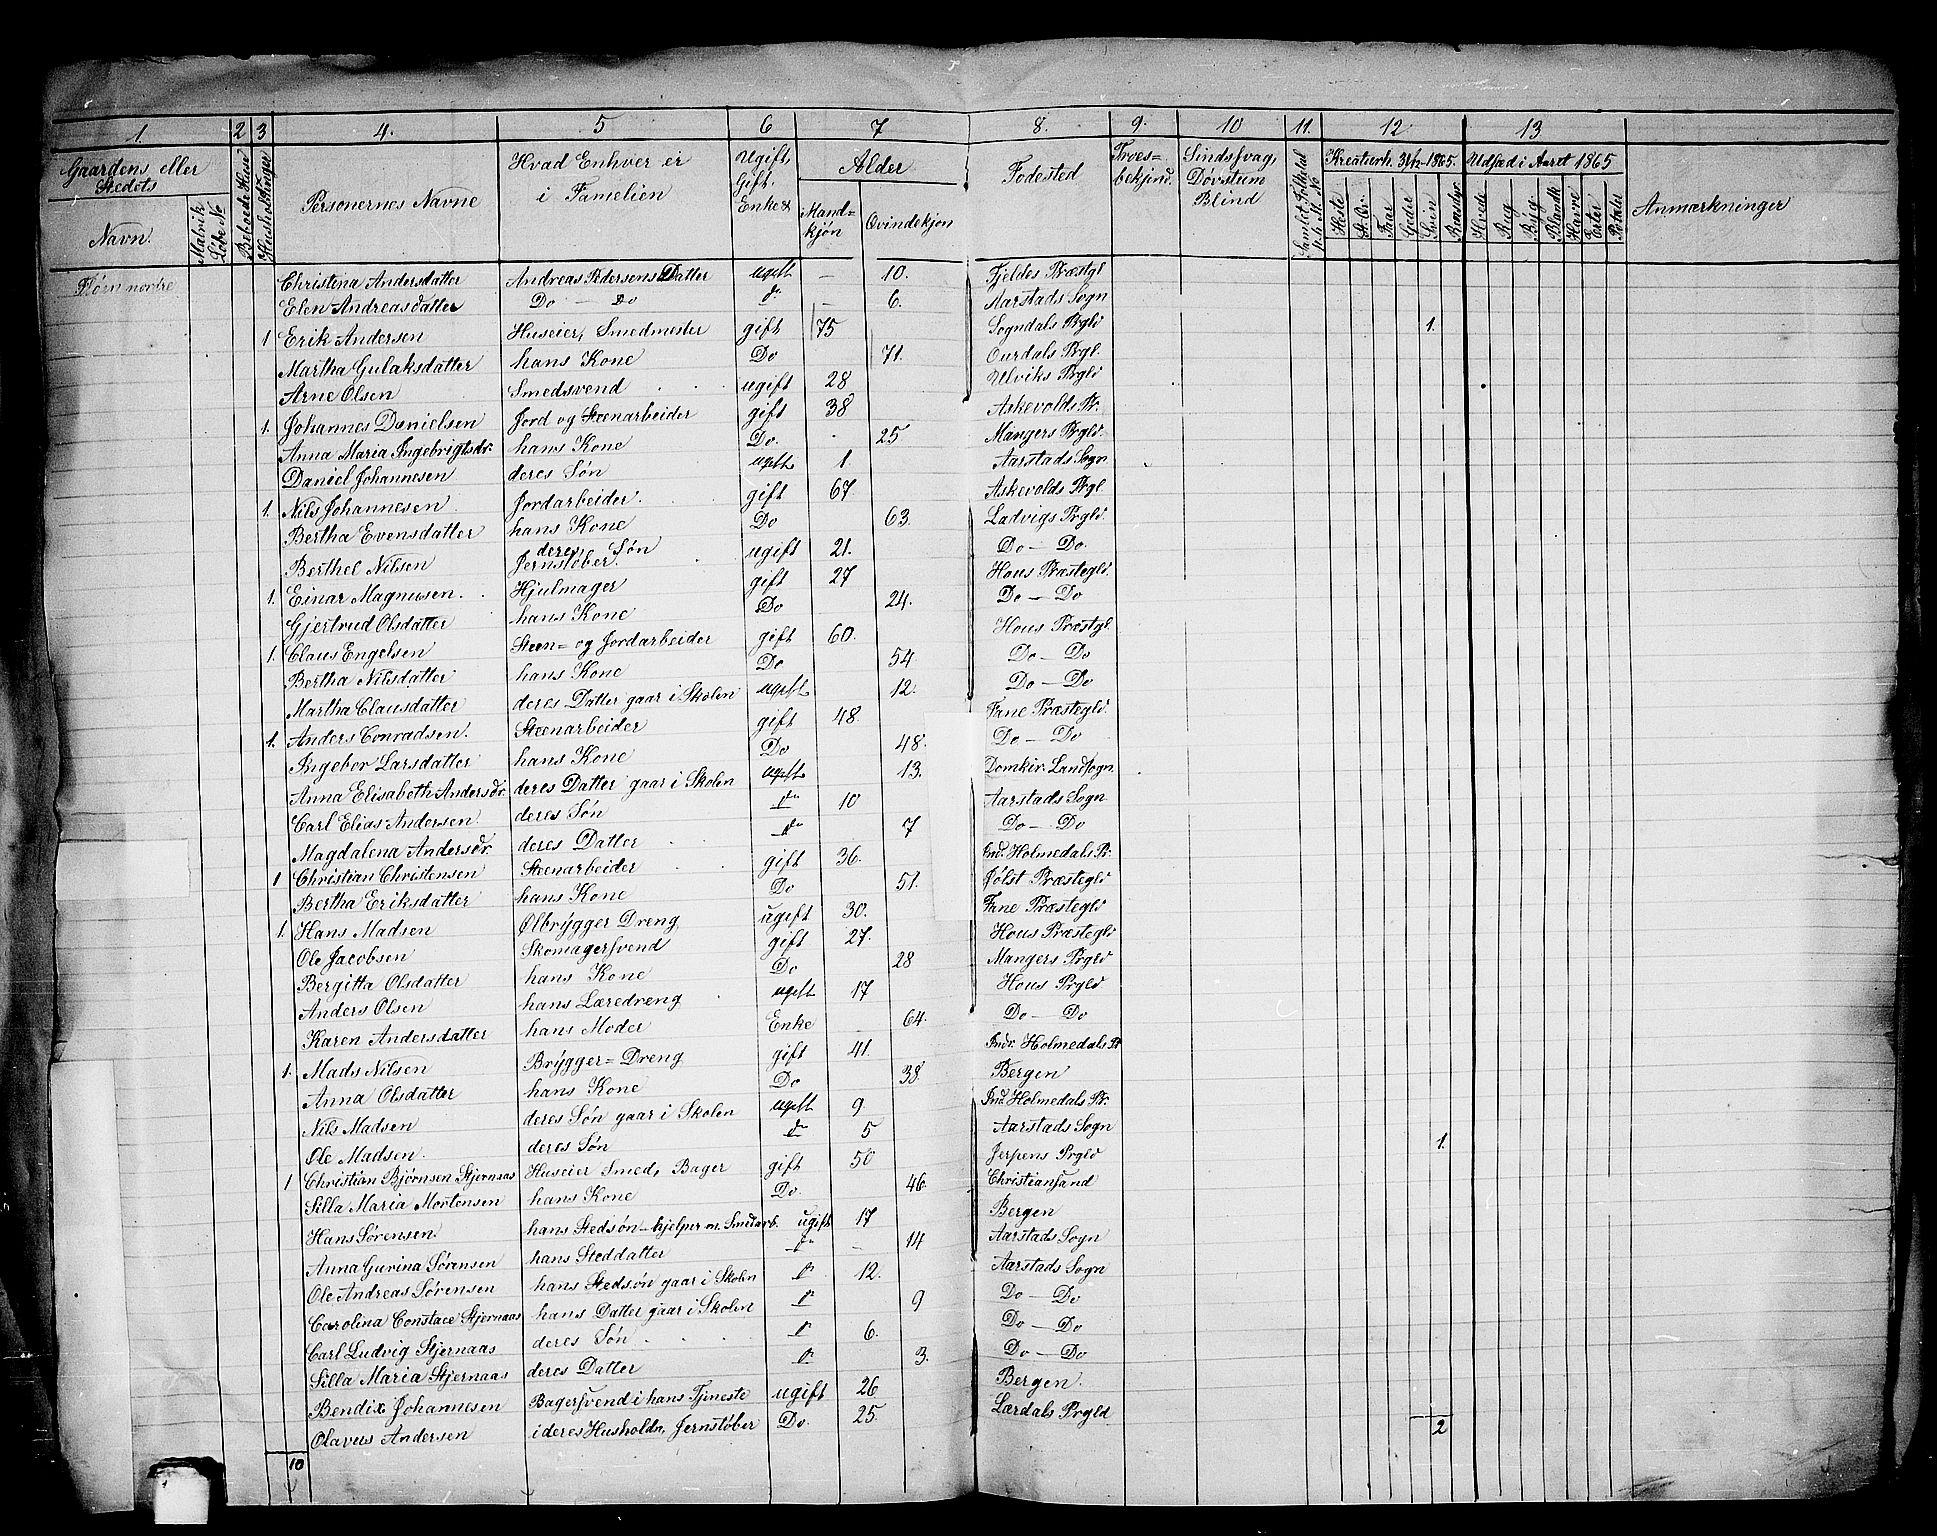 1. 2 3 4. 5 6 7 8. 9. 10 11. 12 13
Gaardens eller Stedets Navn. Matrik Løbe No Beboede Huse Husholdninger Personernes Navne Hvad Enhver er i Famelien Ugift, Gift. Enke& Alder Mandkjön Qvindekjøn Fødested Troesbekjend. Sindssvag, Døvstum Blind Samlet Folketal Kreaturh. 31/12-1865. Heste St. Qv. Faar Geder Svin Rensdyr Udsæd i Aaret 1865 Hvede Rug Byg Blandk Havre Erter Potetes Anmærkninger
Christina Andersdatter Andreas Pedersens Datter ugift — 10. Fjeldes Præstgl
Elen Andreasdatter Do — Do do — 6. Aarstads Sogn
1 Erik Andersen Huseier, Smedmester gift 75 Sogndals Prgld 1.
Martha Gulaksdatter hans Kone Do 71. Ourdals Prgl.
Arne Olsen Smedsvend ugift 28 Ulviks Prgld
1. Johannes Danielsen Jord og Steenarbeider gift 38 Askevolds Pr.
Anna Maria Ingebrigtsdr. hans Kone Do. 25 Mangers Prgld.
Daniel Johannesen deres Søn ugift 1 Aarstads Sogn
1. Nils Johannesen Jordarbeider. gift 67 Askevolds Prgl
Bertha Evensdatter hans Kone Do 63. Ladvigs Prgld.
Berthel Nilsen deres Søn Jernstøber. ugift 21. Do — Do.
1. Einar Magnusen. Hjulmager gift 27 Hous Præstegld.
Gjertrud Olsdatter hans Kone Do 24. Do — Do
1. Claus Engelsen Steen- og Jordarbeider gift 60. Hous Præstgl.
Bertha Nilsdatter hans Kone Do 54 Do — Do
Martha Clausdatter deres Datter gaar i Skolen ugift 12. Do — Do
1. Anders Conradsen. Steenarbeider gift 48. Fane Præstegld.
Ingebor Larsdatter hans Kone Do 48. Do — Do
Anna Elisabeth Andersdr. deres Datter gaar i Skolen ugift 13. Domkir. Landsogn.
Carl Elias Andersen. deres Søn do 10 Aarstads Sogn
Magdalena Andersdr. deres Datter do 7 Do — Do
1 Christian Christensen Steenarbeider gift 36. Ind. Holmedals Pr.
Bertha Eriksdatter hans Kone Do 51. Jølst Præstegld
1. Hans Madsen Ølbrygger Dreng ugift 30. Fane Præstegld
Ole Jacobsen Skomagersvend gift 27. Hous Præstegld
Bergitta Olsdatter hans Kone Do 28 Mangers Prgld
Anders Olsen hans Læredreng ugift 17 Hous Prgld
Karen Andersdatter hans Moder Enke 64. Do — Do
1. Mads Nilsen Brygger-Dreng gift 41. Indr. Holmedals Pr
Anna Olsdatter hans Kone Do 38. Bergen
Nils Madsen deres Søn gaar i Skolen ugift 9 Ind. Holmedals Pr.
Ole Madsen. deres Søn do 5 Aarstads Sogn
1 Christian Bjørnsen Stjernaas Huseier Smed, Bager gift 50 Jerpens Prgld 1.
Silla Maria Mortensen hans Kone Do. 46. Christiansand
Hans Sørensen hans Stedsøn — hjelper m. Smedarb. ugift 17 Bergen
Anna Gurina Sørensen hans Steddatter do — 14 Aarstads Sogn
Ole Andreas Sørensen hans Stedsøn gaar i Skolen do 12. Aarstads Sogn
Carolina Constace Stjernaas hans Datter gaar i Skolen do 9 Do — Do
Carl Ludvig Stjernaas deres Søn do 6. Do — Do
Silla Maria Stjernaas deres Datter do 3. Do — Do
Bendix Johannesen Bagersvend i hans Tjeneste ugift 26 Bergen.
Olavus Andersen i deres Husholdn, Jernstøber Do. 25. Lærdals Prgld
10 2